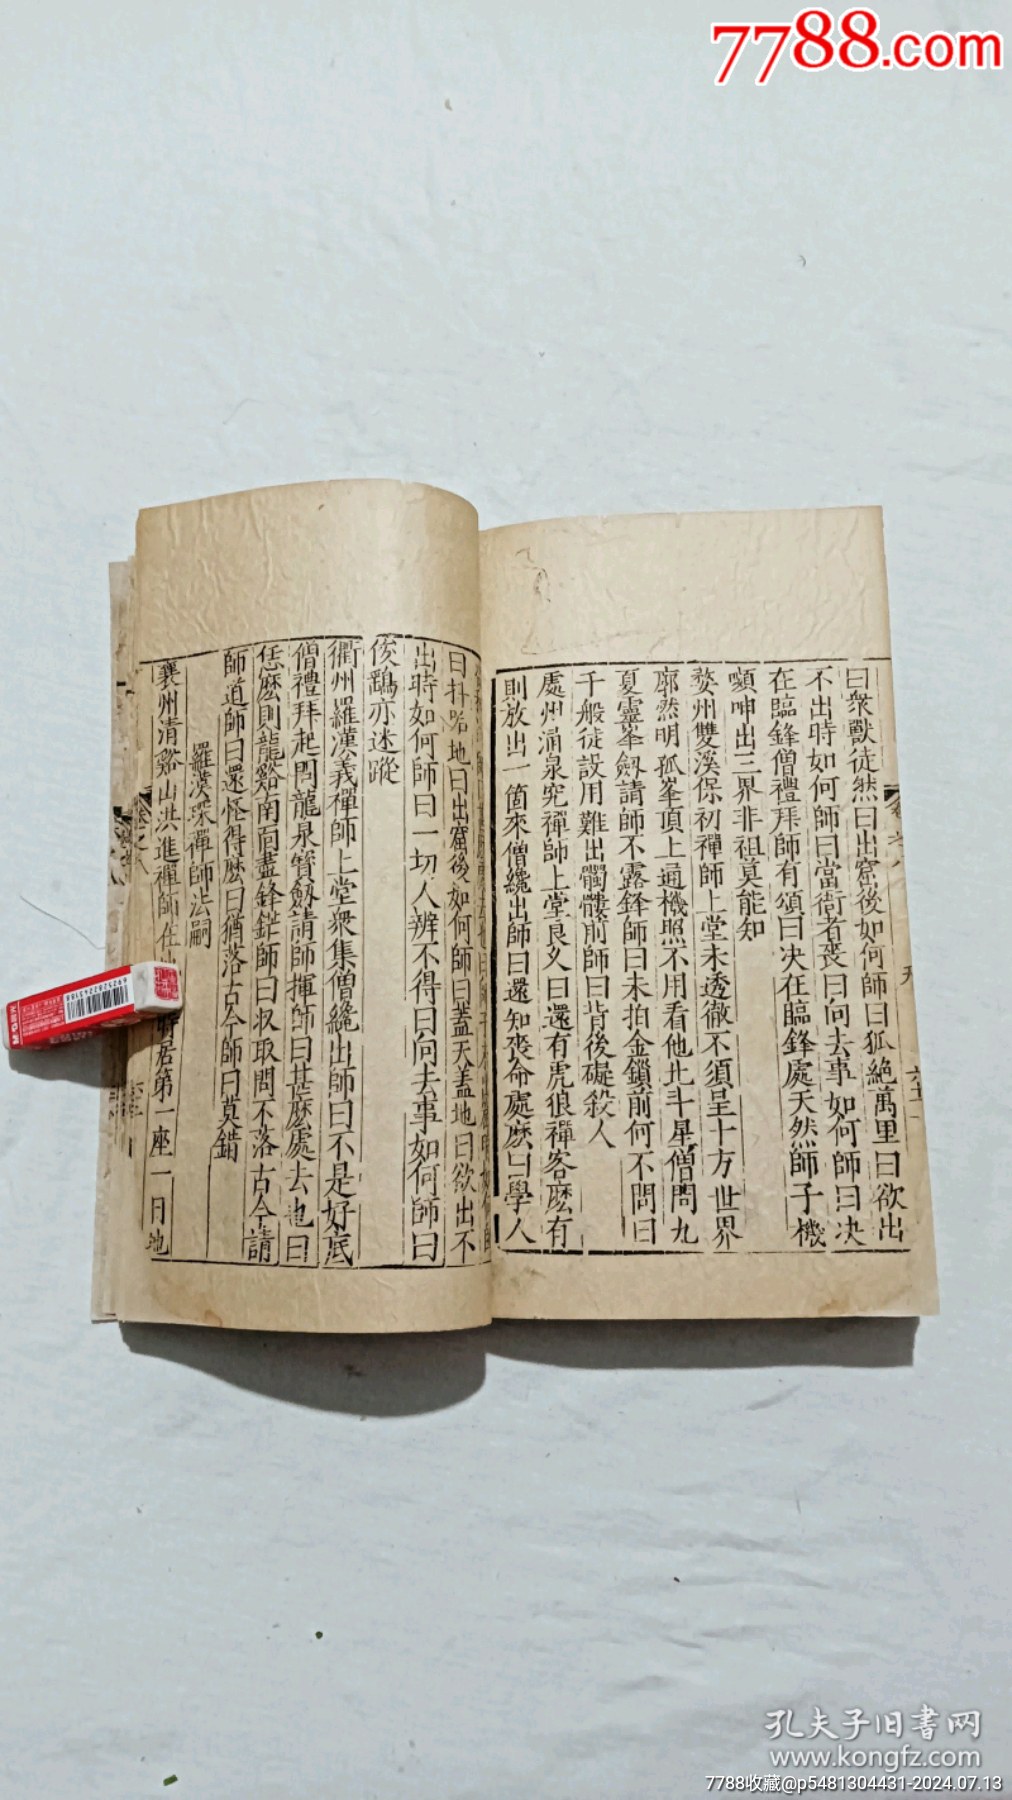 7788.com
曰衆獸徒然曰出窟後如何師曰狐絶萬里曰欲出
不出時如何師曰當衝者喪曰向去事如何師曰决
在臨鋒僧禮拜師有頌曰决在臨鋒處天然師子機
嚬呻出三界非祖莫能知
婺州雙溪保初禪師上堂未透徹不須呈十方世界
廓然明孤峯頂上通機照不用看他北斗星僧問九
夏靈峯劔請師不露鋒師曰未拍金鎖前何不問曰
千般徒設用難出髑髏前師曰背後礙殺人
處州涌泉究禪師上堂良久曰還有虎狼禪客麽有
則放出一箇來僧纔出師曰還知喪命處麽曰學人
曰朴实地曰出窟後如何師曰蓋天蓋地曰欲出不
出時如何師曰一切人辨不得曰向去事如何師曰
俊鷂亦迷蹤
衢州羅漢義禪師上堂衆集僧纔出師曰不是好底
僧禮拜起問龍泉寶劔請師揮師曰甚麽處去也曰
恁麽則龍谿南面盡鋒鋩師曰収取問不落古今請
師道師曰還怪得麽曰猶落古今師曰莫錯
羅漢琛禪師法嗣
襄州清谿山洪進禪師在地藏時居第一座一日地
卷之八
孔夫子旧書网
www.kongfz.com
7788收藏@p5481304431-2024.07.13